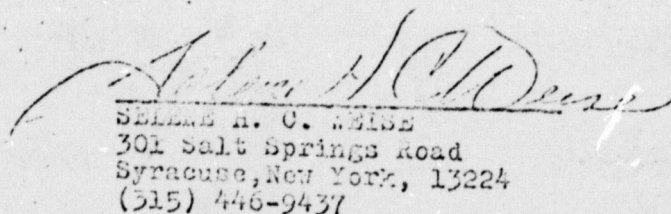 Selene H C Weise
SELENE H. C. WEISE
301 Salt Springs Road
Syracuse,New York, 13224
(315) 446-9437